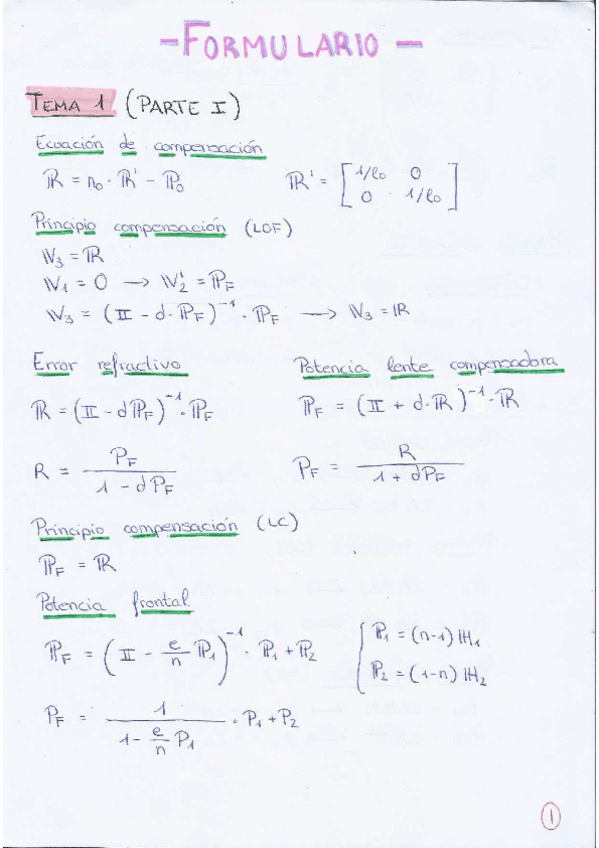 - FORMULARIO -
TEMA 1 (PARTE I)
Ecuación de compensación
ℝ = n₀ · ℝ' - ℙ₀    ℝ' = [1/l₀ 0; 0 · 1/l₀]
Principio compensación (LOF)
𝕎₃ = ℝ
𝕎₁ = 0 → 𝕎₂' = ℙF
𝕎₃ = (𝕀 - d · ℙF)⁻¹ · ℙF → 𝕎₃ = ℝ
Error refractivo    Potencia lente compensadora
ℝ = (𝕀 - dℙF)⁻¹ · ℙF    ℙF = (𝕀 + d · ℝ)⁻¹ · ℝ
R = PF / (1 - dPF)    PF = R / (1 + dPF)
Principio compensación (LC)
ℙF = ℝ
Potencia frontal
ℙF = (𝕀 - e/n ℙ₁)⁻¹ · ℙ₁ + ℙ₂    { ℙ₁ = (n-1) ℍ₁
ℙ₂ = (1-n) ℍ₂
PF = 1 / (1 - e/n P₁) · P₁ + P₂
1